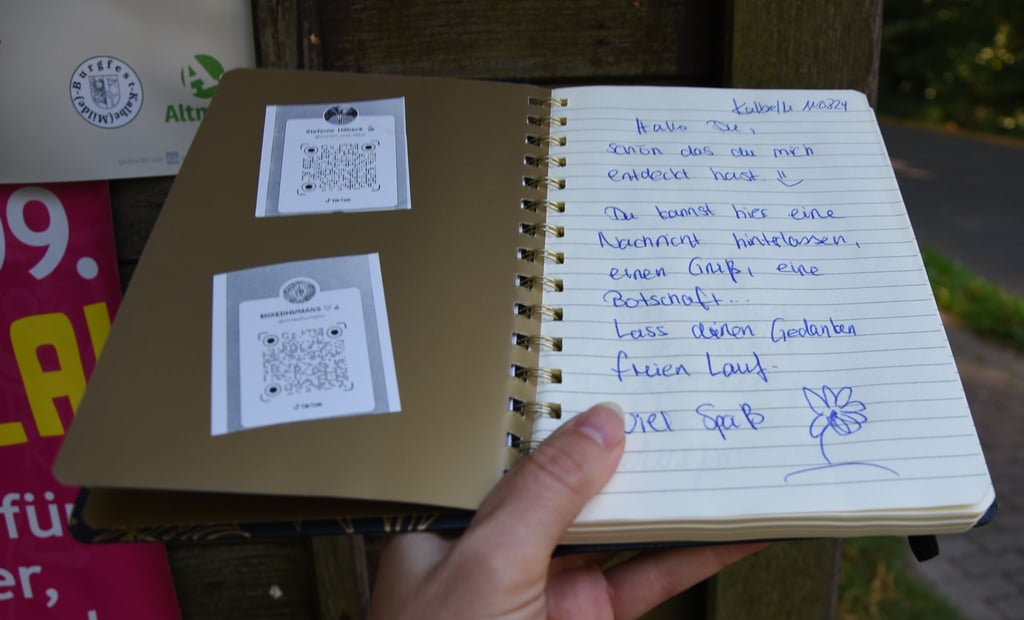 Burgfest Kalbe(Milde)
Altm
09.
LA
für
er,
Stefanie Hilbeck
TikTok
MIXEDHUMANS
TikTok
Kalbe/M 110824
Hallo Du,
schön das du mich
entdeckt hast.
Du kannst hier eine
Nachricht hinterlassen,
einen Gruß, eine
Botschaft...
Lass deinen Gedanken
freien Lauf.
Viel Spaß